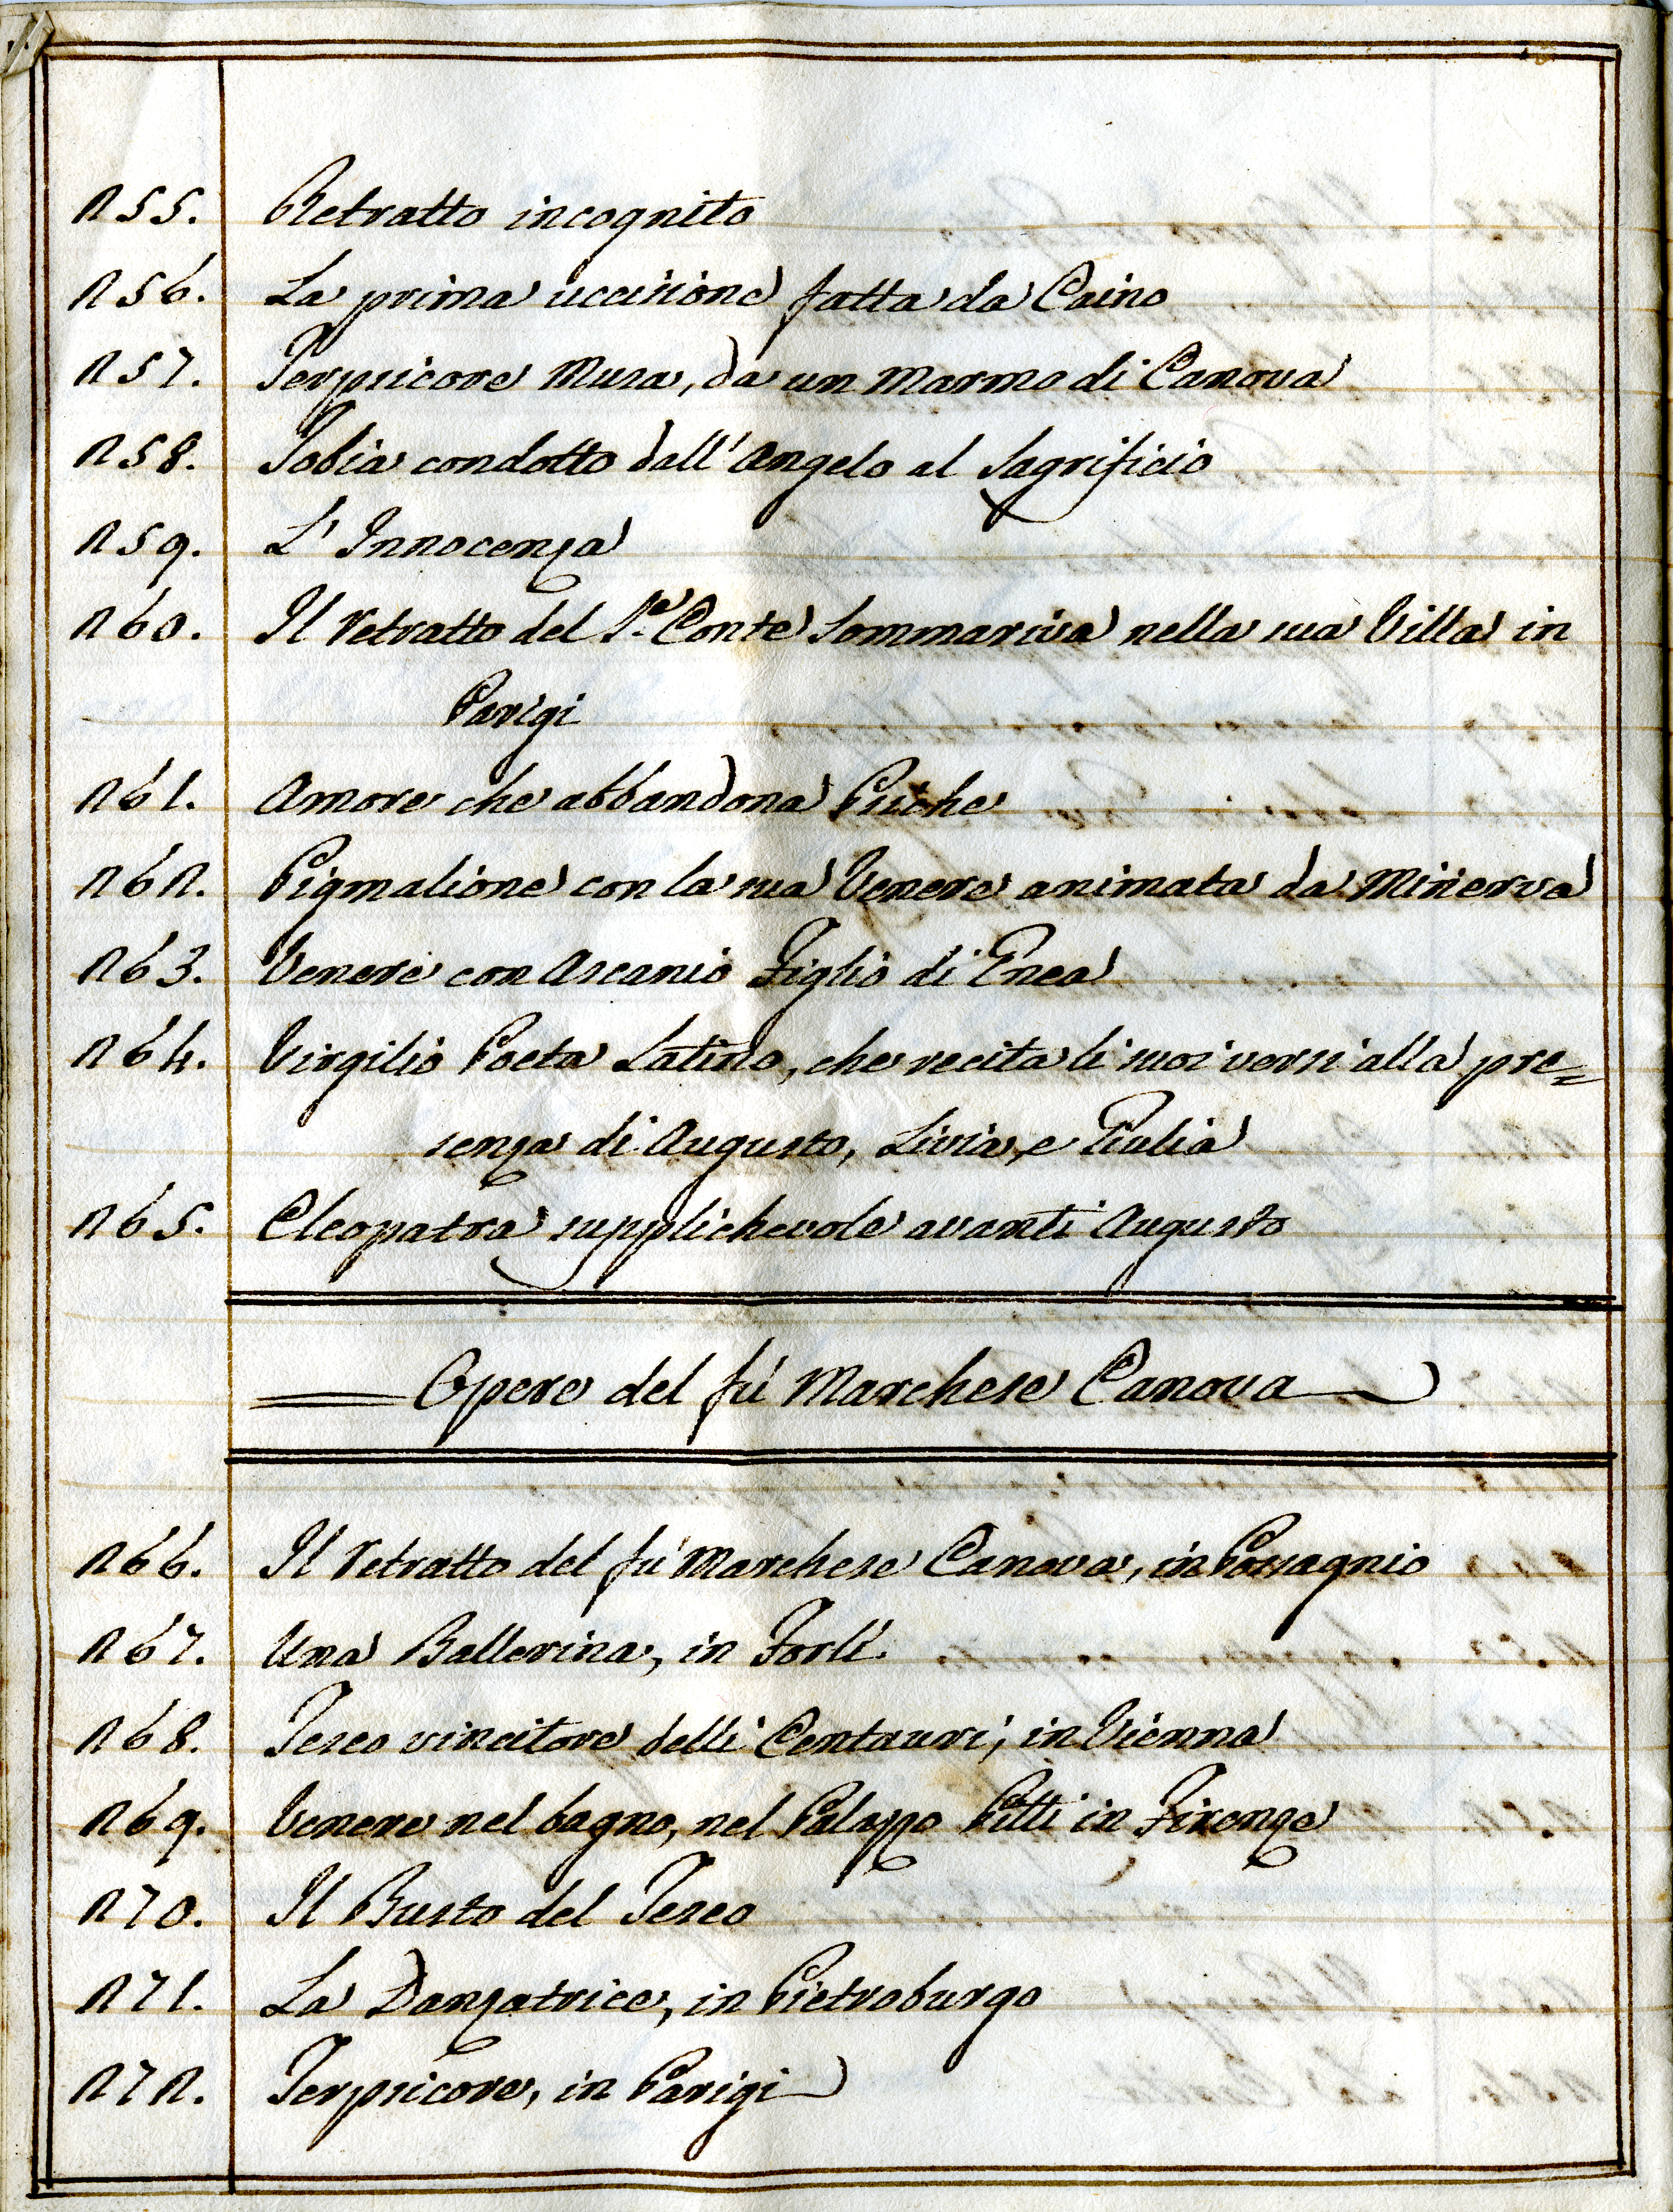 255. Retratto incognito
256. La prima uccisione fatta da Caino
257. Terpsicore Musa, da un Marmo di Canova
258. Tobia condotto dall'Angelo al Sagrificio
259. L'Innocenza
260. Il retratto del S.e Conte Sommariva nella sua Villa in
Parigi
261. Amore che abbandona Psiche
262. Pigmalione con la sua Venere animata da Minerva
263. Venere con Ascanio Figlio di Enea
264. Virgilio Poeta Latino, che recita li suoi versi alla pre=
senza di Augusto, Livia, e Giulia
265. Cleopatra supplichevole avanti Augusto
Opere del fù Marchese Canova
266. Il retratto del fù Marchese Canova, in Possagnio
267. Una Ballerina, in Forlì
268. Teseo vincitore delli Centauri, in Vienna
269. Venere nel bagno, nel Palazzo Pitti in Firenze
270. Il Busto del Teseo
271. La Danzatrice, in Pietroburgo
272. Terpsicore, in Parigi